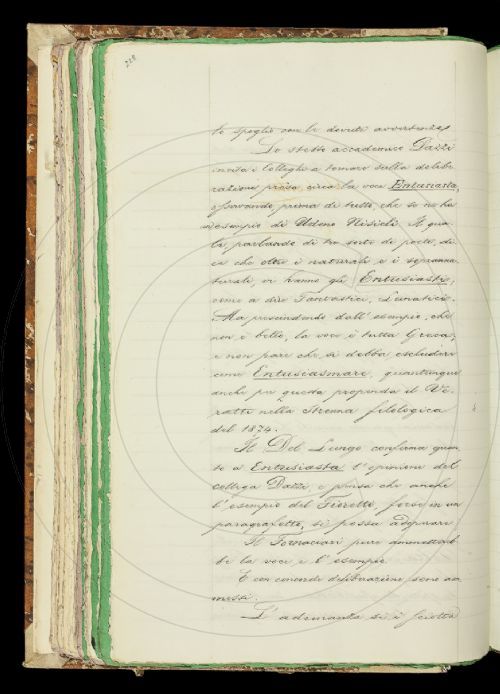 228
lo spoglio con le dovute avvertenze.
Lo stesso accademico Dazzi
invita i Colleghi a tornare sulla delibe
razione presa circa la voce Entusiasta,
osservando prima di tutto, che se ne ha
esempio di Udeno Nisieli. Il qua-
le, parlando di tre sorte di poeti, di
ce che oltre i naturali e i soprannna
turali, vi hanno gli Entusiasti,
come a dire Fantastici, Lunatici.
Ma prescindendo dall'esempio, che
non è bello, la voce è tutta Greca,
e non pare che si debba escludere
come Entusiasmare, quantunque
anche per questa propenda il Ve-
ratti nella Strenna filologica
del 1874.
Il Del Lungo conferma quan
to a Entusiasta l'opinione del
collega Dazzi, e pensa che anche
l'esempio del Fioretti, forse in un
paragrafetto, si possa adoprare.
Il Fornaciari pure ammetterebb
be la voce e l'esempio.
E con concorde deliberazione sono am
messi.
L'adunanza si è sciolta